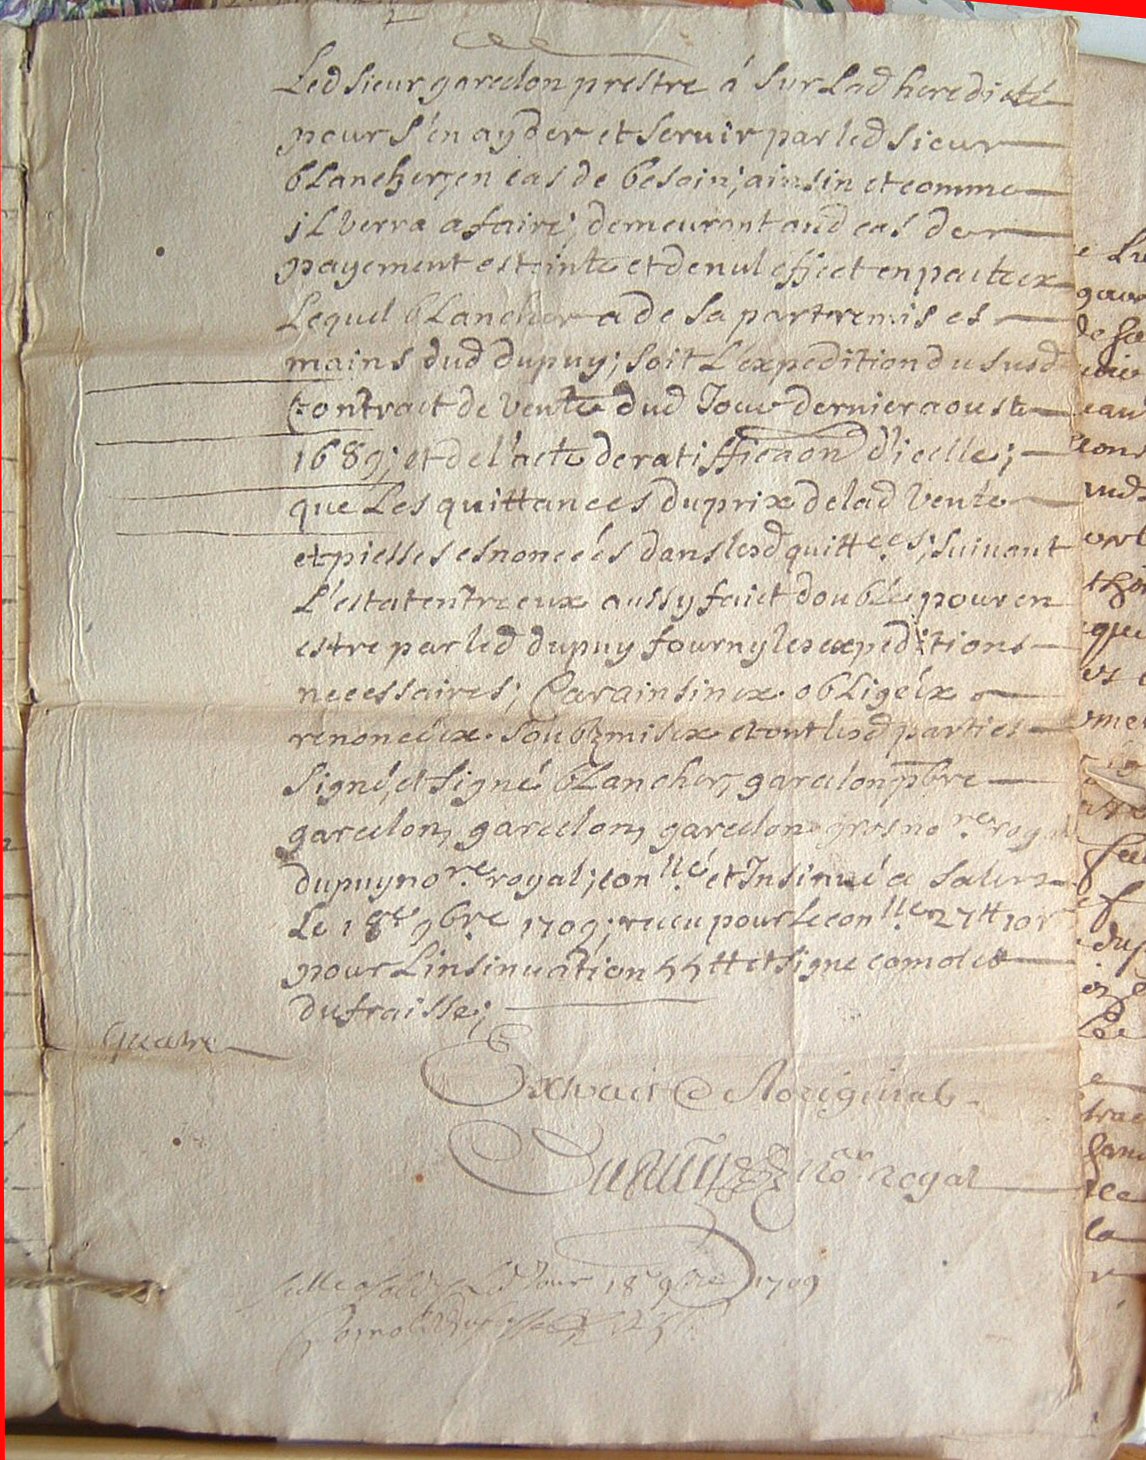 Led sieur garcelon prestre á sur Lad heredicté
pour s'en ayder et servir par led sieur
blancher, en cas de besoin; ainsin et comme
jl verra a faire; demeurant aud cas de
payement esteinte et de nul effect en paiteex
Lequel blancher a de sa part remis es
mains dud dupuy; soit L'expedition du susd
Contract de vente dud Jour dernier aouste
1689; et de l'acte de ratifficaon d'icelle;
que Les quittances du prix de lad vente
et piesses esnonceés dans lesd quittees; suivant
L'estat entre eux aussy faict doublé pour en
estre par led dupuy fourny les expeditions
necessaires; Car ainsin ex. obligéix
renoncéix. soubzmisex et ont lesd parties
signé, et signé blancher, garcelon pbre
garcelon, garcelon, garcelon grosnore royal
dupuy nore. royal; conllé et Insinué a salers
Le 18e 9bre 1709; receu pour le conlle 27tt 10s
pour Linsinuation 55tt et signe comolet
dufraisse;
Quatre
Extrait @ Loriginal
Dupuy Nore. Royal
Led Jour 18e 9bre 1709